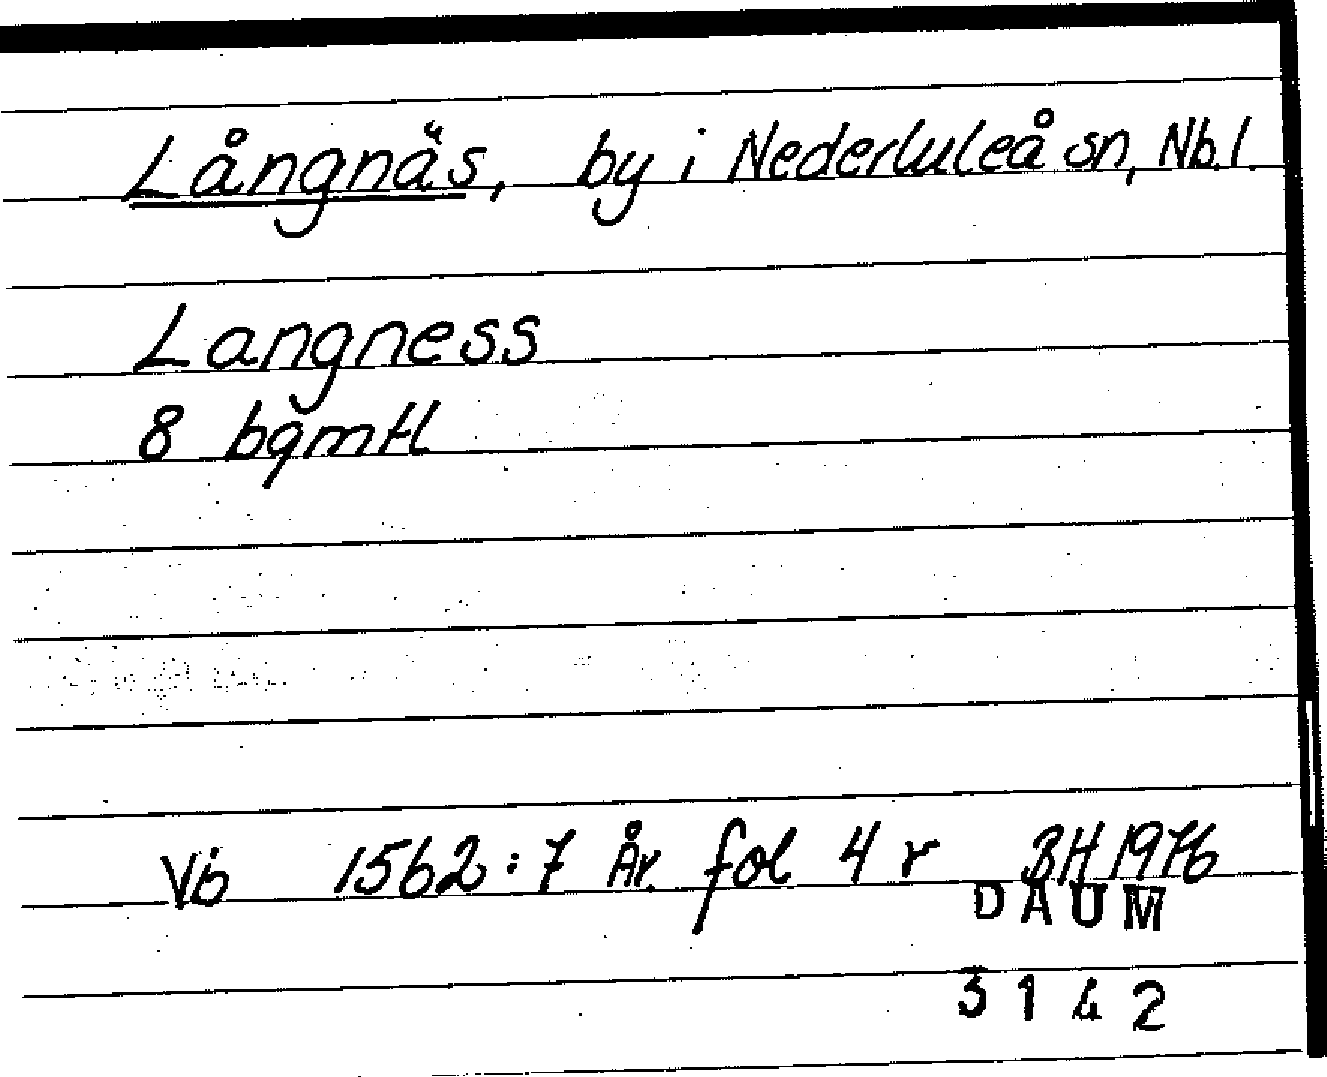 Långnäs, by i Nederluleå sn, Nb.l.
Langness
8 bgmtl
Vb 1562:7 År. fol 4 r BH 1976
DAUM
3142